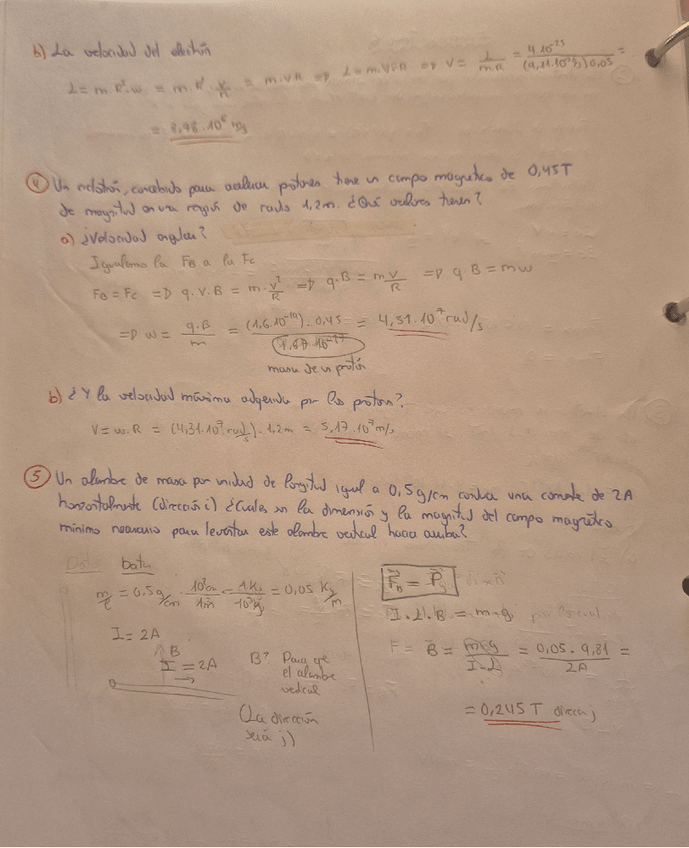 b) La velocidad del electrón
L = m·R²·w = m·R²·V/R = m·VR => L = m·V·R => V = L/m·R = 4·10⁻²⁵/(9,11·10⁻³¹)·0,05 =
= 8,78·10⁶ m/s
④ Un ciclotrón, concebido para acelerar protones tiene un campo magnético de 0,45T
de magnitud en una región de radio 1,2m. ¿Qué valores tienen?
a) ¿Velocidad angular?
Igualamos la FB a la Fc
FB = Fc => q·V·B = m·V²/R => q·B = m V/R => q·B = mw
=> w = q·B/m = (1,6·10⁻¹⁹)·0,45/1,67·10⁻²⁷ = 4,31·10⁷ rad/s
masa de un protón
b) ¿Y la velocidad máxima adquirida por los protones?
V = w·R = (4,31·10⁷ rad/s)·1,2m = 5,17·10⁷ m/s
⑤ Un alambre de masa por unidad de longitud igual a 0,5g/cm conduce una corriente de 2A
horizontalmente (dirección i) ¿Cuáles son la dimensión y la magnitud del campo magnético
mínimo necesario para levantar este alambre vertical hacia arriba?
Datos
m/l = 0.5g/cm · 10²cm/1m · 1Kg/10³g = 0,05 Kg/m
I = 2A
B
I = 2A
B? Para q̃
el alambre
vertical
(La dirección
será j)
F_B = P_g
I·L·B = m·g
F = B = m·g/I·L = 0,05·9,81/2A =
= 0,245T dirección j